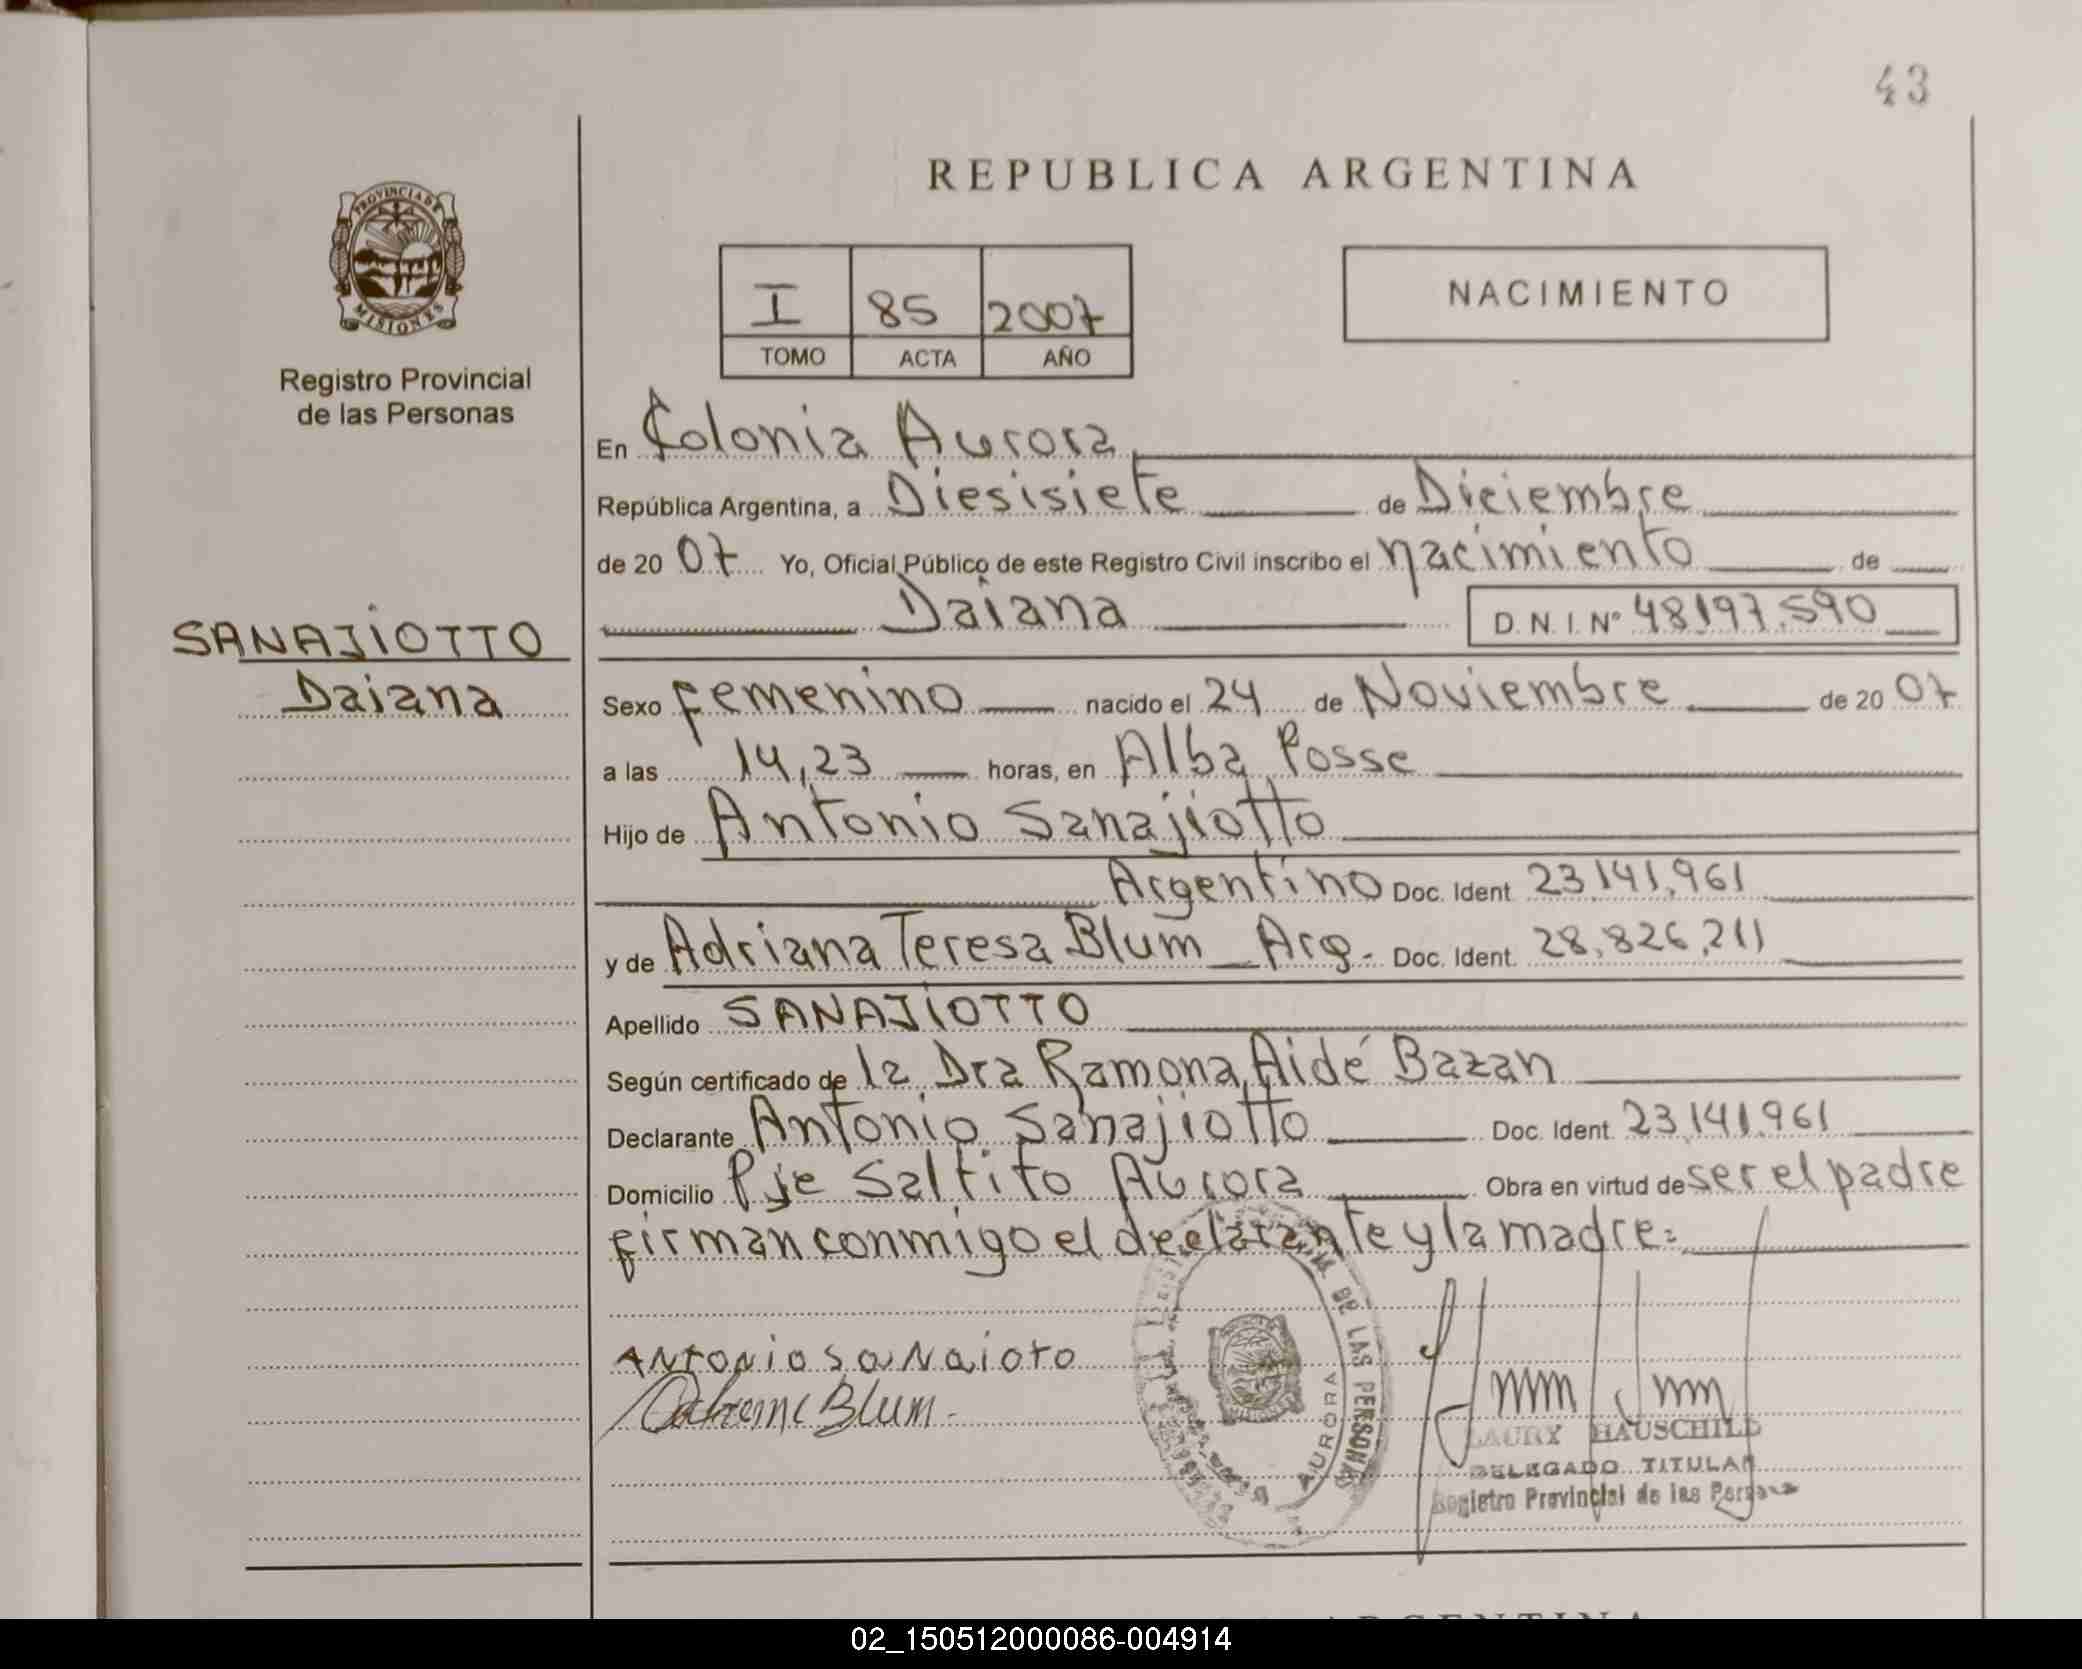 43
REPUBLICA ARGENTINA
PROVINCIA DE
MISIONES
Registro Provincial
de las Personas
I 85 2007
TOMO ACTA AÑO
NACIMIENTO
En Colonia Aurora
República Argentina, a Diesisiete de Diciembre
de 20 07 Yo, Oficial Público de este Registro Civil inscribo el nacimiento de
Daiana D.N.I. Nº 48197.590
SANAJIOTTO
Daiana
Sexo femenino nacido el 24 de Noviembre de 20 07
a las 14,23 horas, en Alba Posse
Hijo de Antonio Sanajiotto
Argentino Doc. Ident. 23.141.961
y de Adriana Teresa Blum Arg. Doc. Ident. 28.826.211
Apellido SANAJIOTTO
Según certificado de la Dra Ramona Aidé Bazan
Declarante Antonio Sanajiotto Doc. Ident. 23.141.961
Domicilio Pje Saltito Aurora Obra en virtud de ser el padre
firman conmigo el declarante y la madre:
DE LAS PERSONAS
AURORA
ANTONIO SANAIOTO
Blum.
LAURY HAUSCHILD
DELEGADO TITULAR
Registro Provincial de las Personas
ARGENTINA
02_150512000086-004914